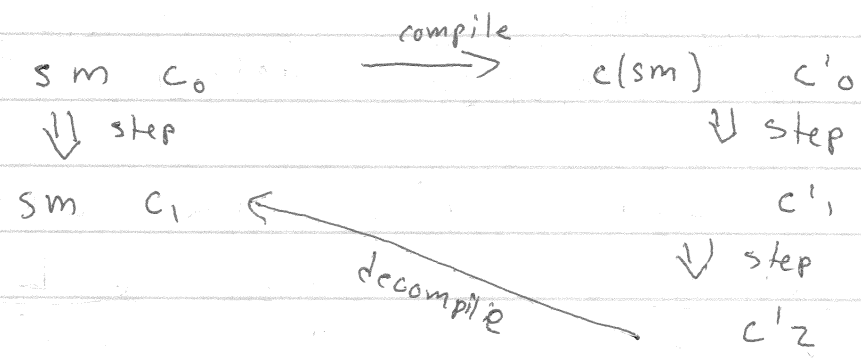 compile
sm c₀ c(sm) c'₀
step step
sm c₁ c'₁
decompile step
c'₂